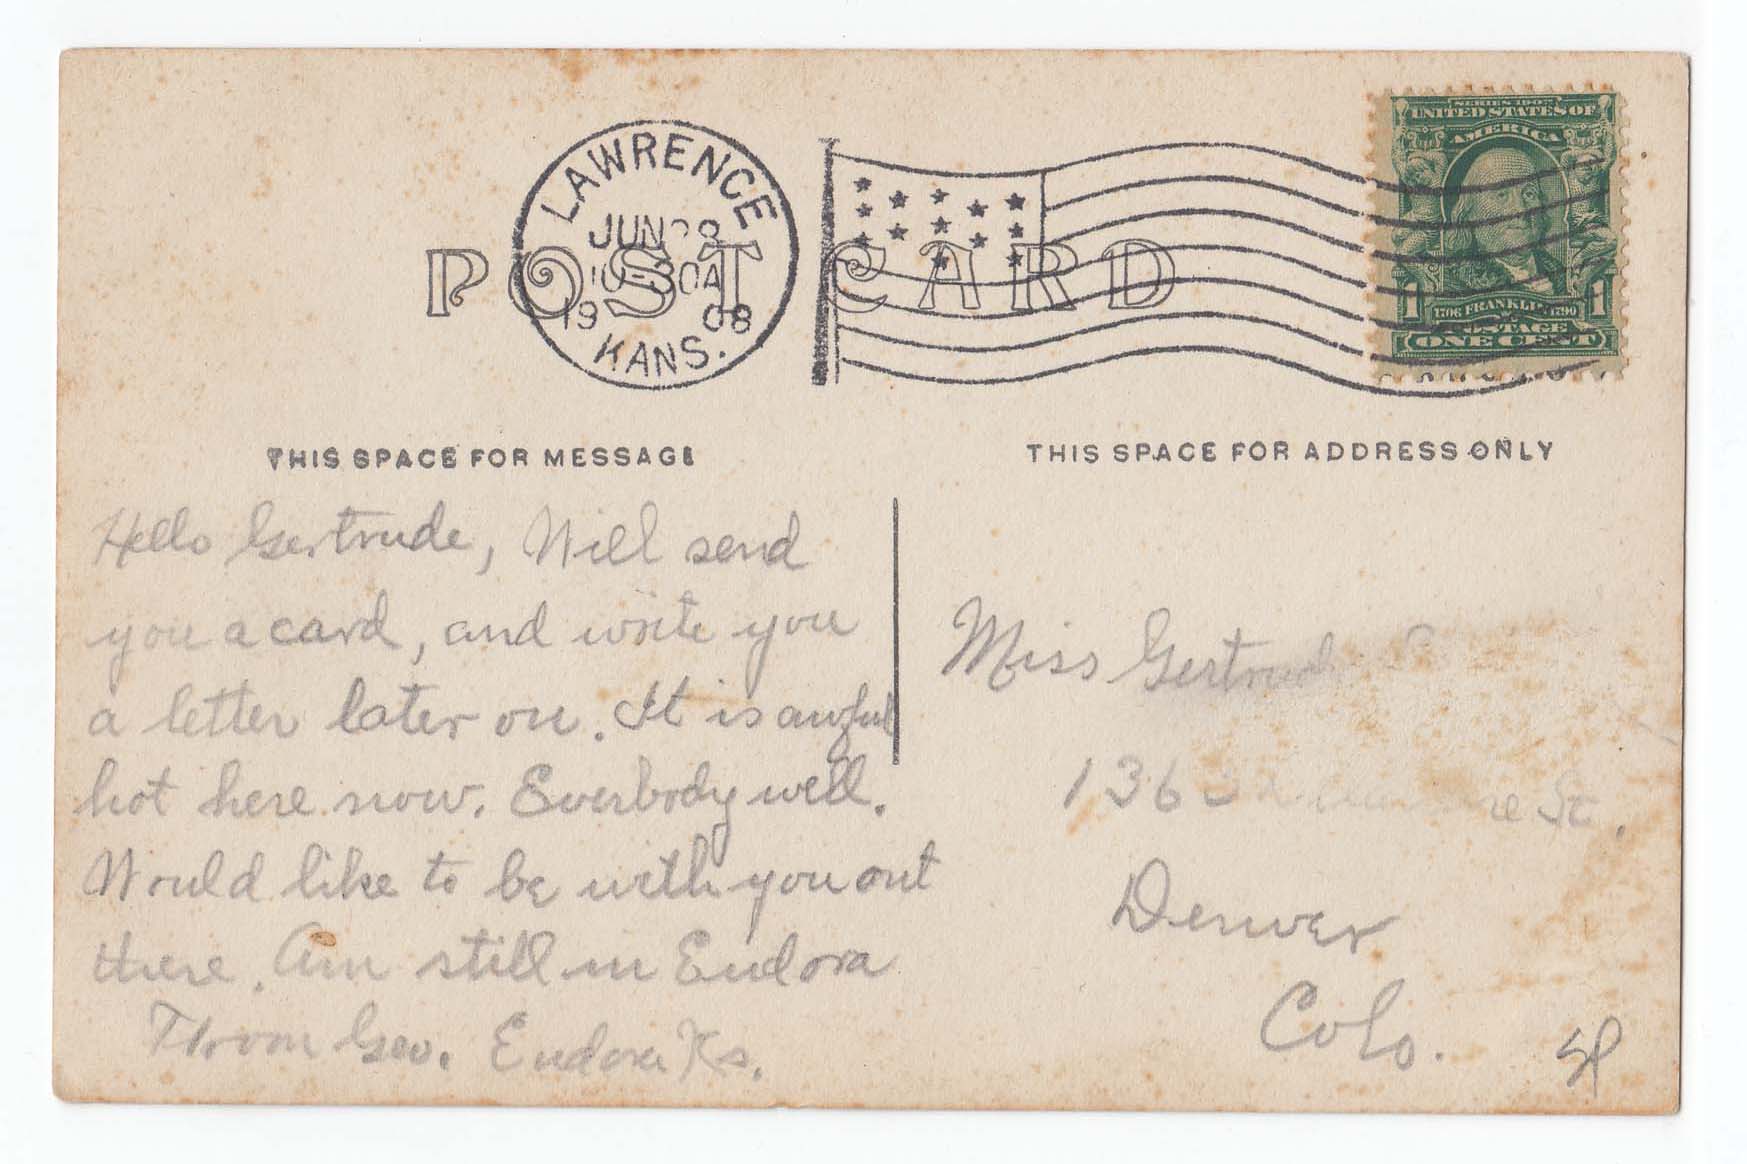 LAWRENCE
JUN 28
10-30A
19 08
KANS.
POST CARD
UNITED STATES OF
AMERICA
1 1706 FRANKLIN 1790 1
POSTAGE
ONE CENT
THIS SPACE FOR MESSAGE
Hello Gertrude, Will send
you a card, and write you
a letter later on. It is awful
hot here now. Everbody well.
Would like to be with you out
there. Am still in Eudora
From Geo. Eudora Ks.
THIS SPACE FOR ADDRESS ONLY
Miss Gertrude
St.
Denver
Colo.